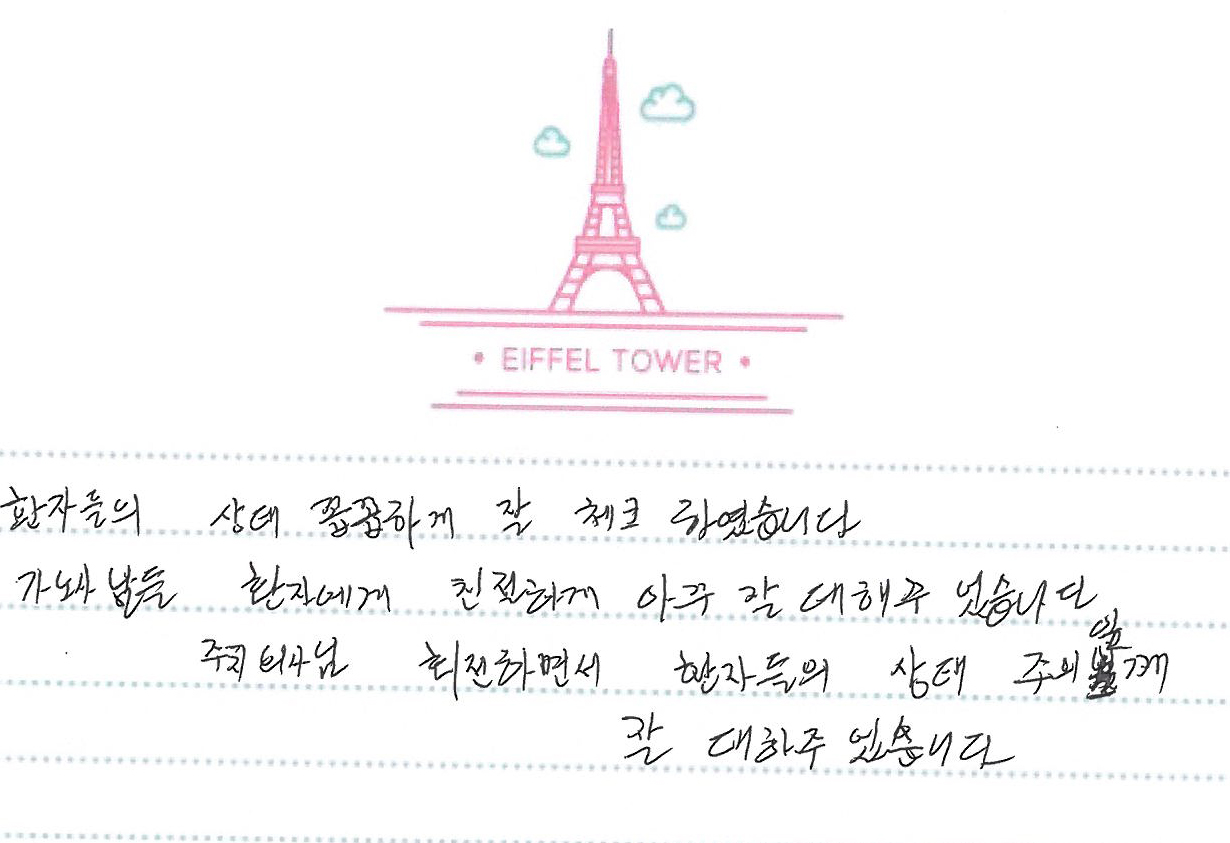 EIFFEL TOWER
환자들의 상태 꼼꼼하게 잘 체크 하였습니다
가노사님들 환자에게 친절하게 아주 잘 대해주 었습니다
주치의사님 회전하면서 환자들의 상태 주의 있게
잘 대하주 었습니다